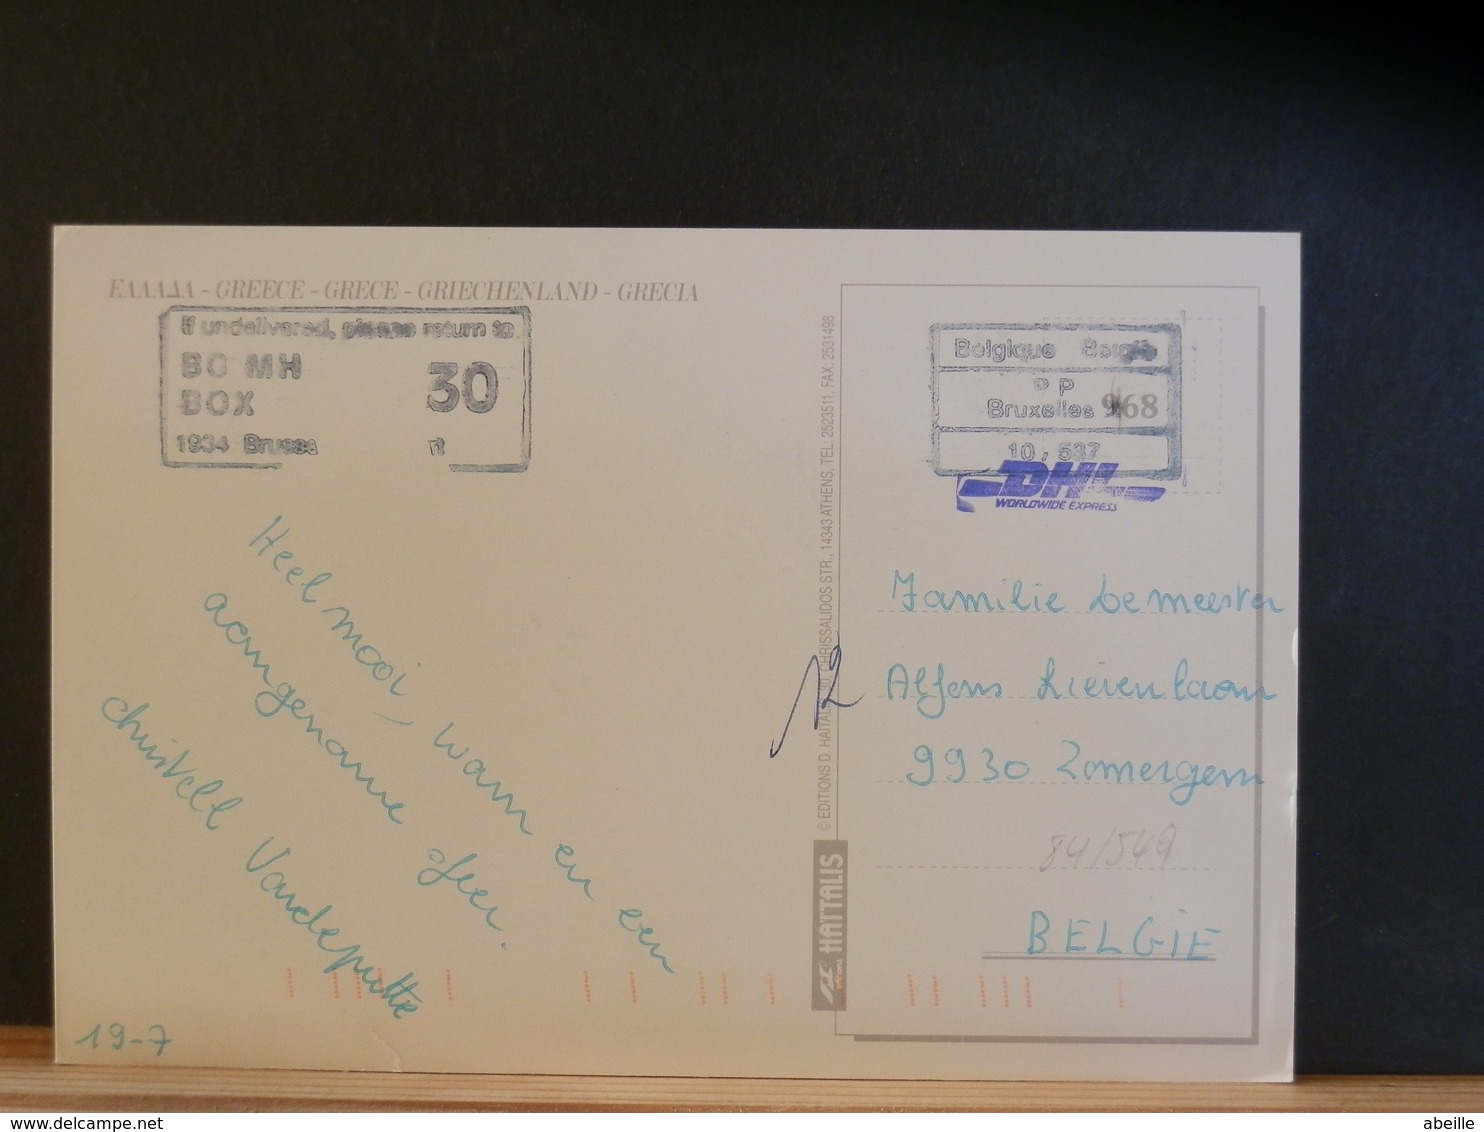 ΕΛΛΑΔΑ - GREECE - GRECE - GRIECHENLAND - GRECIA
If undelivered, please return to
BC MH
BOX
30
1934 Bruss
Heel mooi, warm en een
aangename sfeer.
Christell Vandeputte
19-7
© EDITIONS D. HAITALIS
CHRISSALIDOS STR., 14343 ATHENS, TEL: 2523511, FAX: 2531498
HAÏTALIS
12
Belgique België
P P
Bruxelles X
968
10,537
DHL
WORLDWIDE EXPRESS
Familie Demeester
Alfons Lievenlaan
9930 Zomergem
84/549
BELGIE
delcampe.net
abeille